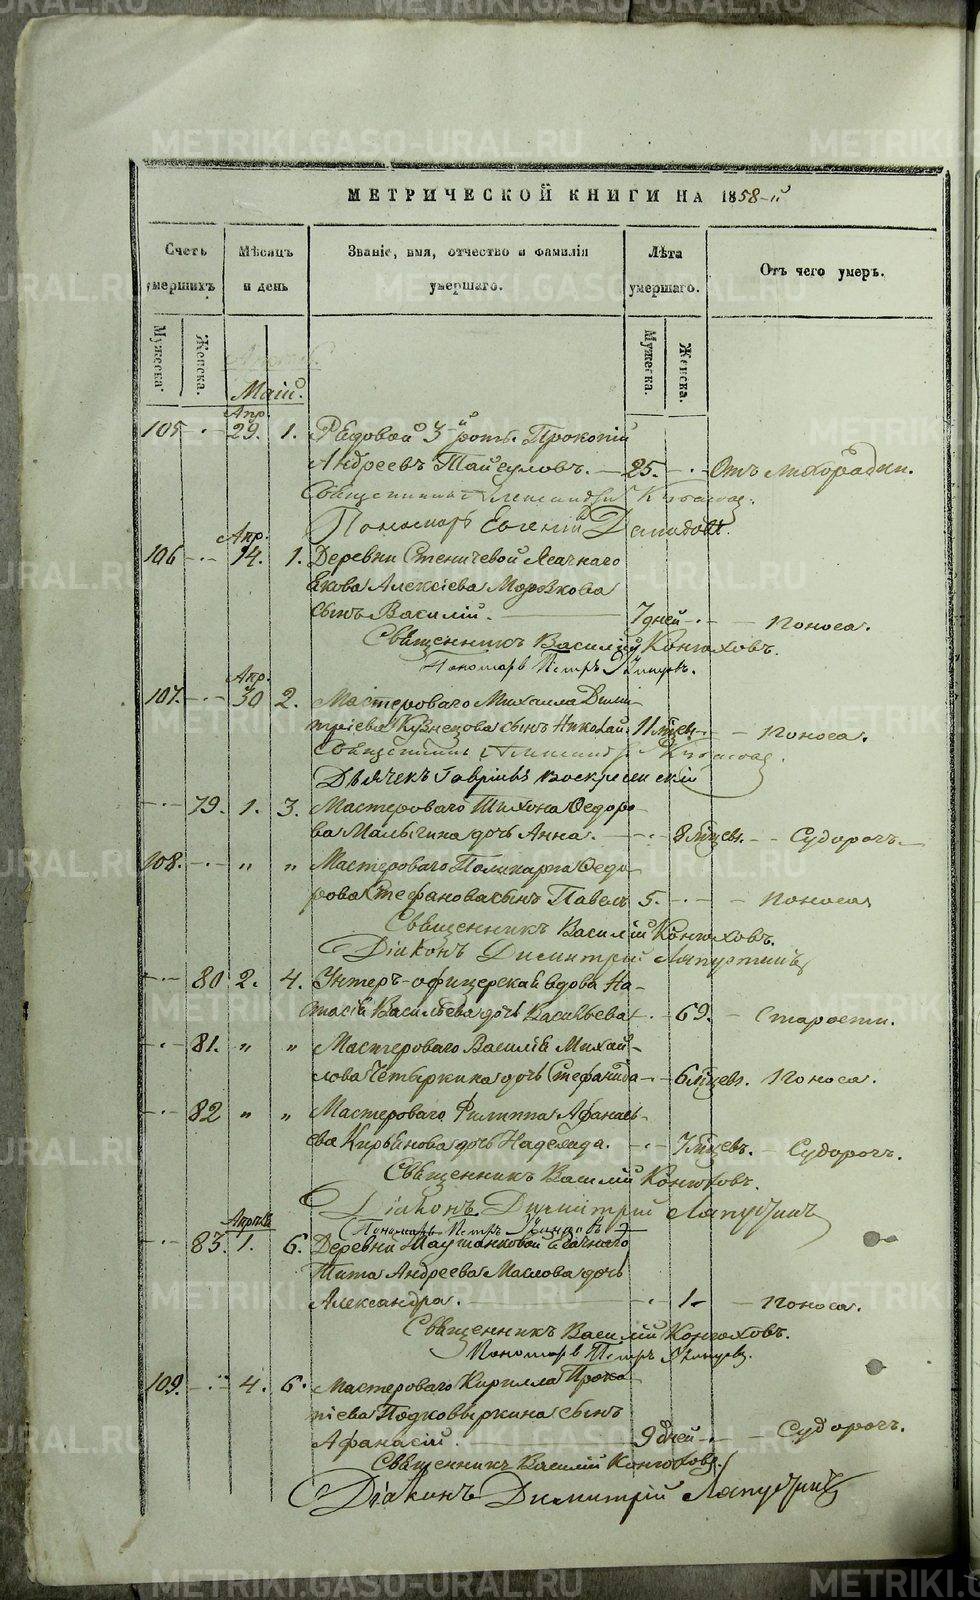 МЕТРИЧЕСКОЙ КНИГИ НА 1858-й
Счетъ умершихъ
Мѣсяцъ и день
Званіе, имя, отчество и фамилія умершаго.
Лѣта умершаго.
Отъ чего умеръ.
Мужеска. Женска.
Мужеска. Женска.
Маій.
Апр.
105 29. 1. Рядовой 3-й роты Прокопій
Андреевъ 25. Отъ лихорадки.
Священникъ Александръ
Пономарь Евгеній Демидовъ.
Апр.
106 14. 1. Деревни
Якова Алексіева Моровкова
сынъ Василій. 7 дней Поноса.
Священникъ Василій Конюховъ.
Пономарь Петръ
Апр.
107. 30 2. Мастероваго Михаила Дими-
тріева Кузнецова сынъ Николай 11 мцев. Поноса.
Священникъ Александръ
Дьячекъ Гавріилъ Воскресенскій
79. 1. 3. Мастероваго Тихона Ѳедоро-
ва Малыгина дочь Анна. 8 мцев. Судорогъ.
108. " " Мастероваго Поликарпа Ѳедо-
рова Стефанова сынъ Павелъ 5. Поноса
Священникъ Василій Конюховъ.
Діаконъ Димитрій Лапустинъ
80 2. 4. Унтеръ-офицерская вдова На-
стасія Васильева дочь Васильева 69. Старости.
81. " " Мастероваго Василія Михай-
лова Четыркина дочь Стефанида 6 мцев. Поноса.
82 " " Мастероваго Филиппа Афанась-
ева Кирьянова дочь Надежда. 7 мцевъ. Судорогъ.
Священникъ Василій Конюховъ.
Діаконъ Димитрій Лапустинъ
Пономарь Петръ
Апрѣль
83. 1. 6. Деревни
Тита Андреева Маслова дочь
Александра. 1. Поноса.
Священникъ Василій Конюховъ.
Пономарь Петръ
109. 4. 6. Мастероваго Кирилла Проко-
піева Подковыркина сынъ
Афанасій. 9 дней Судорогъ.
Священникъ Василій Конюховъ.
Діаконъ Димитрій Лапустинъ
METRIKI.GASO-URAL.RU